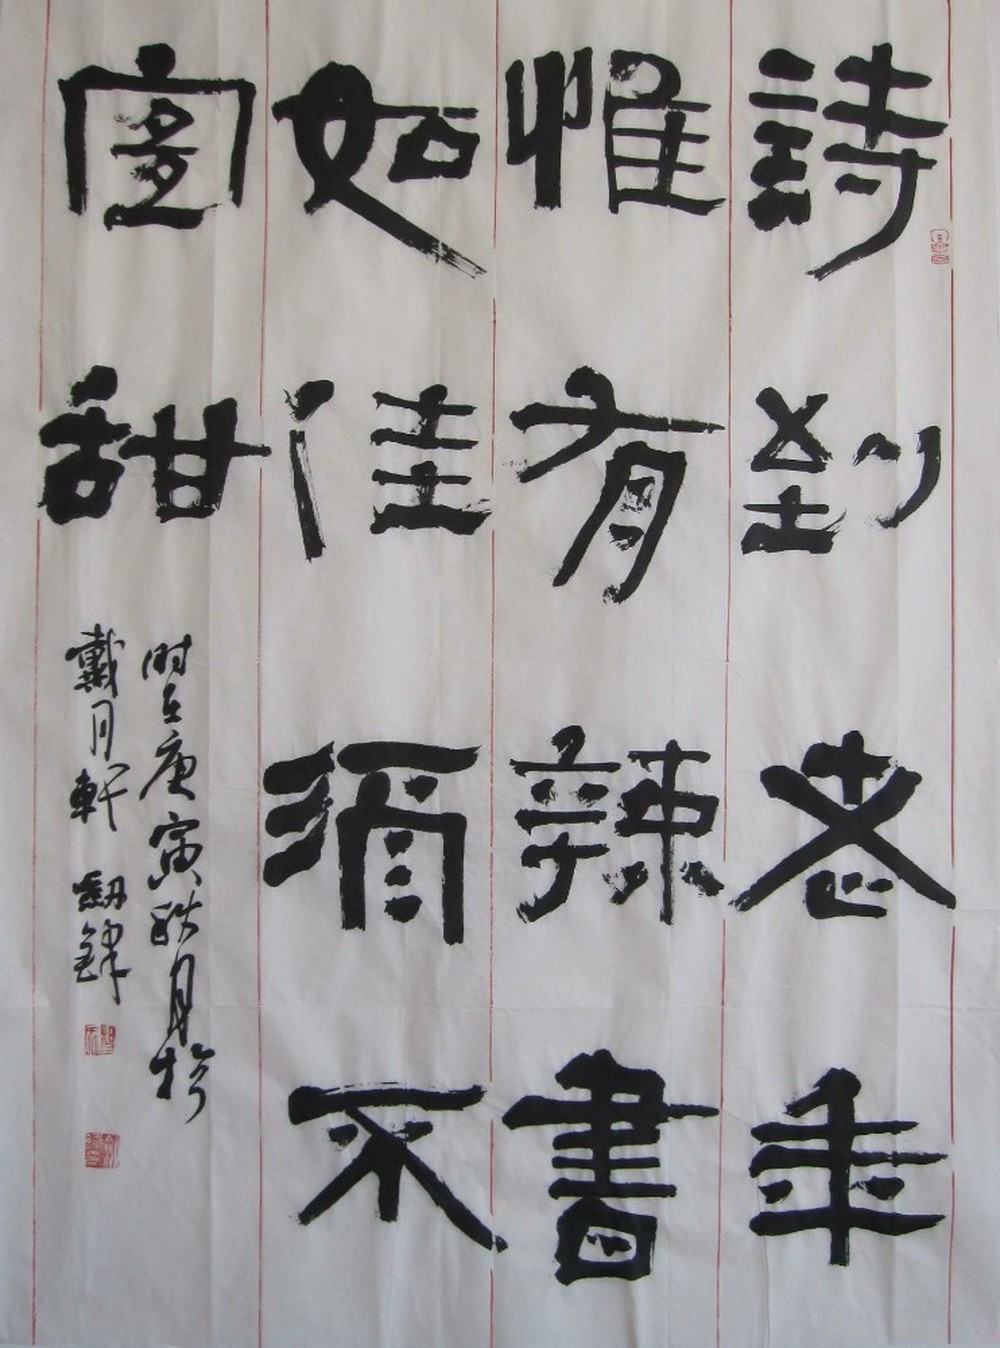 詩到老年
惟有辣書
如佳酒不
宜甜
时在庚寅秋月於
戴月軒 劒鋒